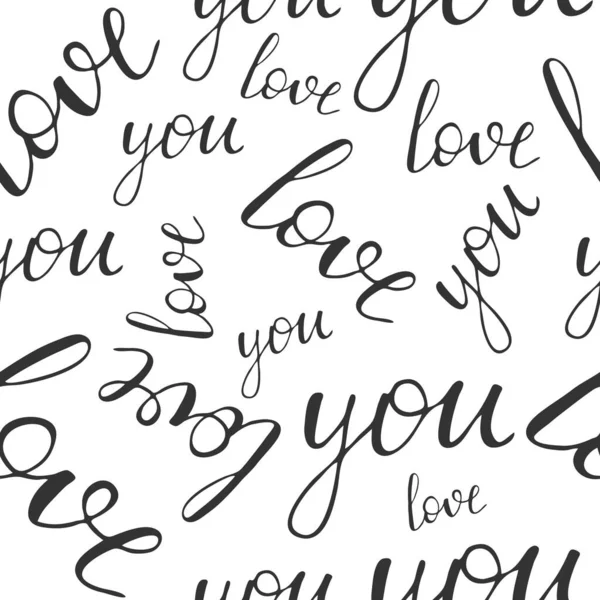 you
you
love
love
you
love
love
you
you
love
love
you
you
love
you
love
love
you
you